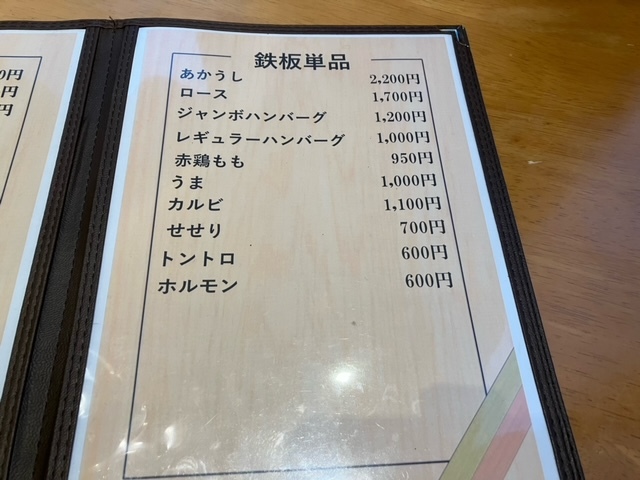 0円
円
円
鉄板単品
あかうし 2,200円
ロース 1,700円
ジャンボハンバーグ 1,200円
レギュラーハンバーグ 1,000円
赤鶏もも 950円
うま 1,000円
カルビ 1,100円
せせり 700円
トントロ 600円
ホルモン 600円